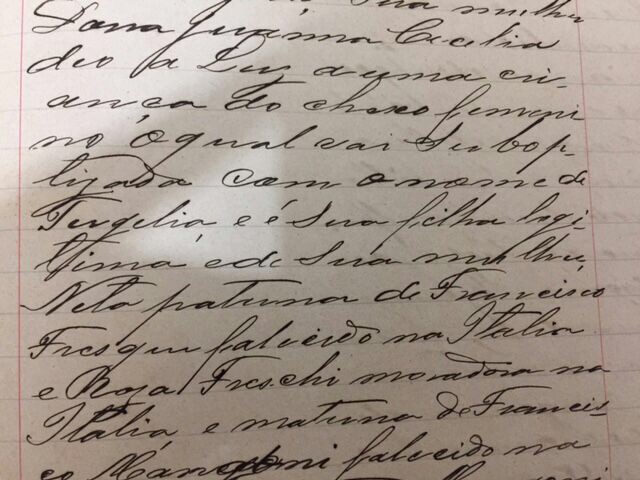 sua mulher
Dona Juánna Cecilia
deo a Luz a uma cri-
ança do chexo femeni
no o qual vai Subap-
tizada com o nome de
e é Sua filha legi-
tima e de Sua mulher,
Neta paturna de Francisco
Fresqui falicido na Italia
e Roza Freschi moradora na
Italia, e maturna de Francis-
co falicido na